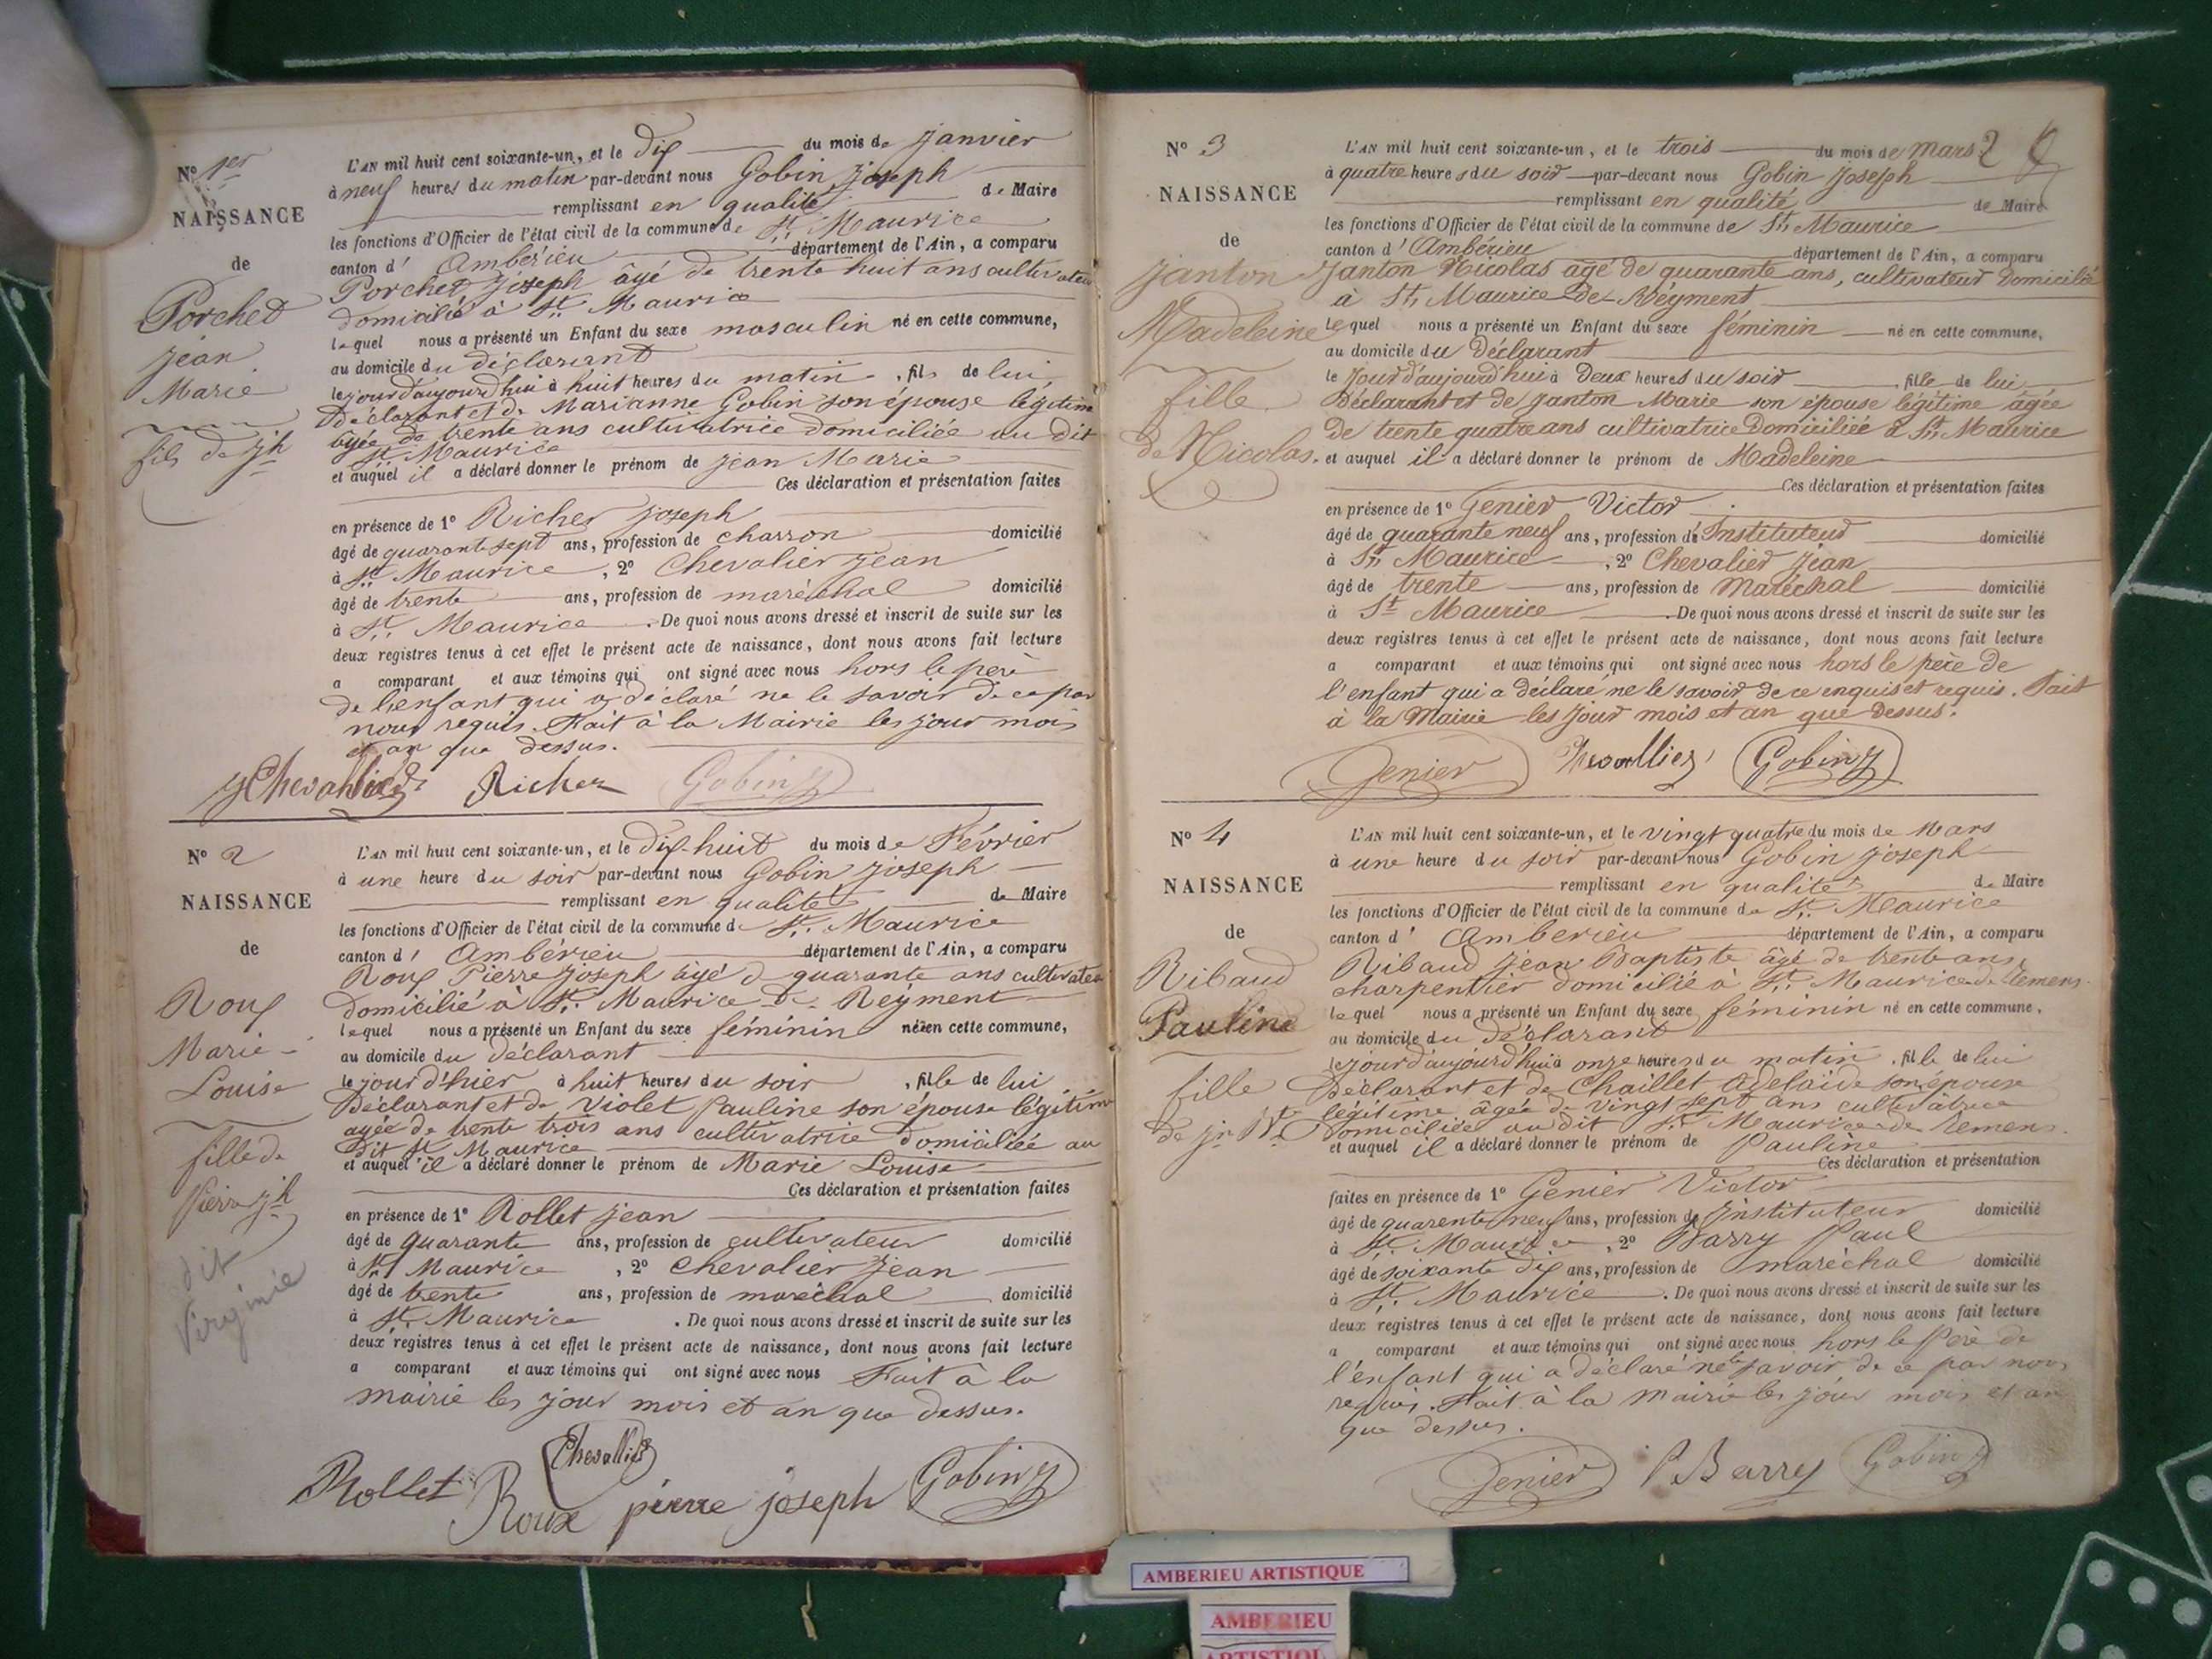 N° 1er
NAISSANCE
de
Porchet
Jean
Marie
fils de Jh
L'AN mil huit cent soixante-un, et le dix du mois de Janvier
à neuf heures du matin par-devant nous Gobin Joseph
remplissant en qualité de Maire
les fonctions d'Officier de l'état civil de la commune de St. Maurice
canton d' Ambérieu département de l'Ain, a comparu
Porchet Joseph âgé de trente huit ans cultivateur
domicilié à St. Maurice
lequel nous a présenté un Enfant du sexe masculin né en cette commune,
au domicile du déclarant
le jour d'aujourd'hui à huit heures du matin, fils de lui
Déclarant et de Marianne Gobin son épouse légitime
âgée de trente ans cultivatrice domiciliée au dit
St Maurice
et auquel il a déclaré donner le prénom de Jean Marie
Ces déclaration et présentation faites
en présence de 1° Richer Joseph
âgé de quarante sept ans, profession de charron domicilié
à St. Maurice, 2° Chevalier Jean
âgé de trente ans, profession de maréchal domicilié
à St. Maurice. De quoi nous avons dressé et inscrit de suite sur les
deux registres tenus à cet effet le présent acte de naissance, dont nous avons fait lecture
a comparant et aux témoins qui ont signé avec nous hors le père
de l'enfant qui a déclaré ne le savoir de ce par
nous requis. Fait à la Mairie les jour mois
et an que dessus.
J Chevallier Richer Gobin J
N° 2
NAISSANCE
de
Roux
Marie
Louise
fille de
Pierre Jh
dit
Virginie
L'AN mil huit cent soixante-un, et le dix-huit du mois de Février
à une heure du soir par-devant nous Gobin Joseph
remplissant en qualité de Maire
les fonctions d'Officier de l'état civil de la commune d. St. Maurice
canton d' Ambérieu département de l'Ain, a comparu
Roux Pierre Joseph âgé d. quarante ans cultivateur
domicilié à St. Maurice De Reyment
lequel nous a présenté un Enfant du sexe féminin née en cette commune,
au domicile du déclarant
le jour d'hier à huit heures du soir, fille de lui
Déclarant et de Violet Pauline son épouse légitime
agée de trente trois ans cultivatrice domiciliée au
Dit St Maurice
et auquel il a déclaré donner le prénom de Marie Louise
Ces déclaration et présentation faites
en présence de 1° Rollet Jean
âgé de quarante ans, profession de cultivateur domicilié
à St Maurice, 2° Chevalier Jean
âgé de trente ans, profession de maréchal domicilié
à St. Maurice. De quoi nous avons dressé et inscrit de suite sur les
deux registres tenus à cet effet le présent acte de naissance, dont nous avons fait lecture
a comparant et aux témoins qui ont signé avec nous Fait à la
mairie les jour mois et an que dessus.
Chevallier
Rollet Roux pierre joseph Gobin J
2
N° 3
NAISSANCE
de
Janton
Madeleine
fille
de Nicolas.
L'AN mil huit cent soixante-un, et le trois du mois de mars
à quatre heures du soir par-devant nous Gobin Joseph
remplissant en qualité de Maire
les fonctions d'Officier de l'état civil de la commune de St. Maurice
canton d' Ambérieu département de l'Ain, a comparu
Janton Nicolas agé de quarante ans, cultivateur domicilié
à St. Maurice-de-Réyment
lequel nous a présenté un Enfant du sexe féminin né en cette commune,
au domicile du Déclarant
le Jour d'aujourd'hui à Deux heures du soir, fille de lui
Déclarant et de Janton Marie son épouse légitime âgée
De trente quatre ans cultivatrice Domiciliée à St. Maurice
et auquel il a déclaré donner le prénom de Madeleine
Ces déclaration et présentation faites
en présence de 1° Genier Victor
âgé de quarante neuf ans, profession d'Instituteur domicilié
à St. Maurice, 2° Chevalier Jean
âgé de trente ans, profession de Maréchal domicilié
à St Maurice. De quoi nous avons dressé et inscrit de suite sur les
deux registres tenus à cet effet le présent acte de naissance, dont nous avons fait lecture
a comparant et aux témoins qui ont signé avec nous hors le père de
l'enfant qui a déclaré ne le savoir de ce enquis et requis. Fait
à la Mairie les Jour mois et an que Dessus.
Genier Chevallier Gobin J
N° 4
NAISSANCE
de
Ribaud
Pauline
fille
de Jn Bte
L'AN mil huit cent soixante-un, et le vingt quatre du mois de Mars
à une heure du soir par-devant nous Gobin Joseph
remplissant en qualité de Maire
les fonctions d'Officier de l'état civil de la commune de St. Maurice
canton d' Ambérieu département de l'Ain, a comparu
Ribaud Jean Baptiste âgé de trente ans
charpentier domicilié à St. Maurice-de-Remens
lequel nous a présenté un Enfant du sexe féminin né en cette commune,
au domicile du Déclarant
le jour d'aujourd'hui à onze heures du matin, fille de lui
Déclarant et de Chaillet Adelaïde son épouse
légitime âgée de vingt sept ans cultivatrice
Domiciliée au dit St. Maurice-de-Remens.
et auquel il a déclaré donner le prénom de Pauline
Ces déclaration et présentation
faites en présence de 1° Genier Victor
âgé de quarente neuf ans, profession de Instituteur domicilié
à St. Maurice, 2° Barry Paul
âgé de soixante dix ans, profession de maréchal domicilié
à St. Maurice. De quoi nous avons dressé et inscrit de suite sur les
deux registres tenus à cet effet le présent acte de naissance, dont nous avons fait lecture
a comparant et aux témoins qui ont signé avec nous hors le Père de
l'enfant qui a déclaré ne le savoir de ce par nous
requis. Fait à la Mairie les jour mois et an
que dessus.
Genier P Barry Gobin J
AMBERIEU ARTISTIQUE
AMBERIEU
ARTISTIQUE